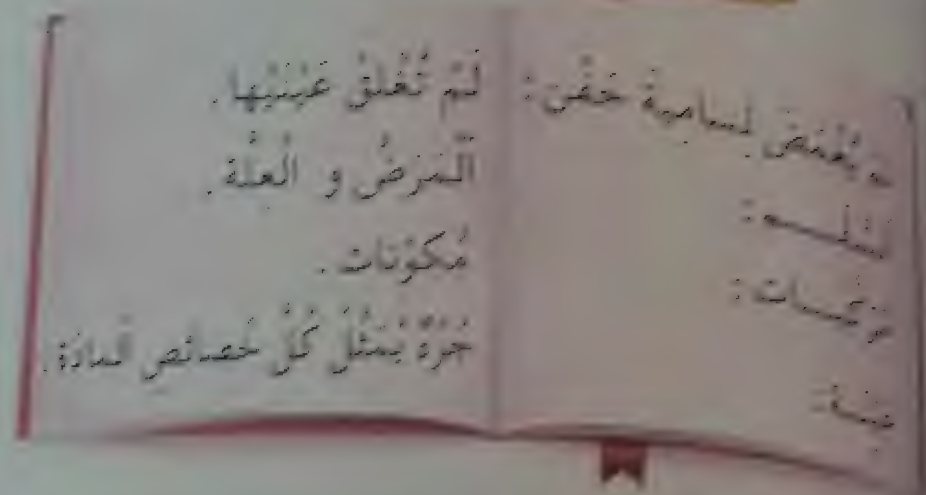 لم يُغْمَضْ لسامية جَفْن: لَمْ تُغْلَقْ عَيْنَيْها.
السَّقَم: الْمَرَضُ و الْعِلَّة.
مُرَكَّبات: مُكَوِّنات.
عَيِّنة: جُزْءٌ يُمَثِّلُ كُلَّ خَصائصِ المادّة.